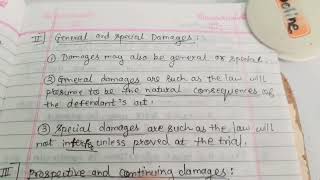 II] General and special Damages :
① Damages may also be general or special.
② General damages are such as the law will
presume to be the natural consequences of
the defendant's act.
③ special damages are such as the law will
not infer unless proved at the trial.
III] Prospective and continuing damages :